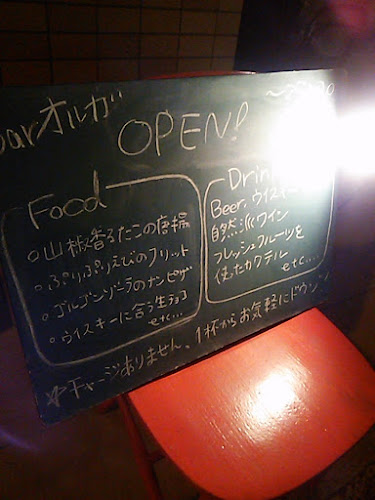 bar オルガ
OPEN!
Food
○山椒香るたこの唐揚
○ぷりぷりえびのフリット
○ゴルゴンゾーラのナンピザ
○ウイスキーに合う生チョコ
etc...
Drin
Beer. ウイスキー
自然派ワイン
フレッシュフルーツを
使ったカクテル
etc....
☆チャージありません、1杯からお気軽にドウゾ